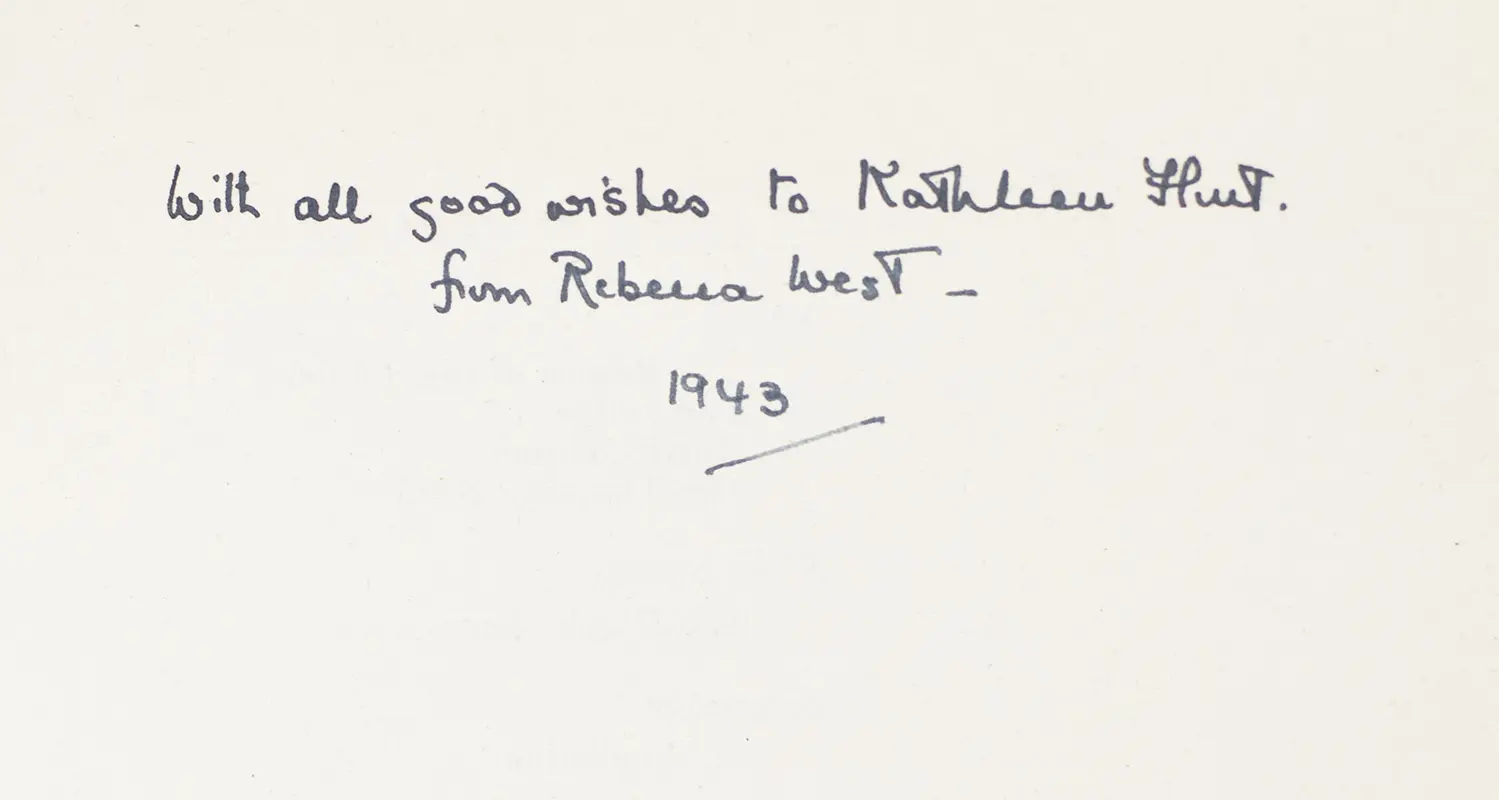 With all good wishes to Kathleen Hunt.
from Rebecca West –
1943